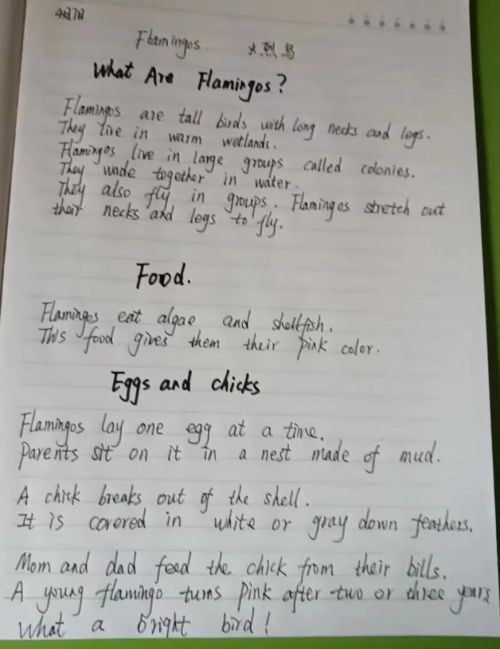 Flamingos. 火烈鸟
What Are Flamingos?
Flamingos are tall birds with long necks and legs.
They live in warm wetlands.
Flamingos live in large groups called colonies.
They wade together in water.
They also fly in groups. Flamingos stretch out
their necks and legs to fly.
Food.
Flamingos eat algae and shellfish.
This food gives them their pink color.
Eggs and chicks
Flamingos lay one egg at a time.
Parents sit on it in a nest made of mud.
A chick breaks out of the shell.
It is covered in white or gray down feathers.
Mom and dad feed the chick from their bills.
A young flamingo turns pink after two or three years
What a bright bird!